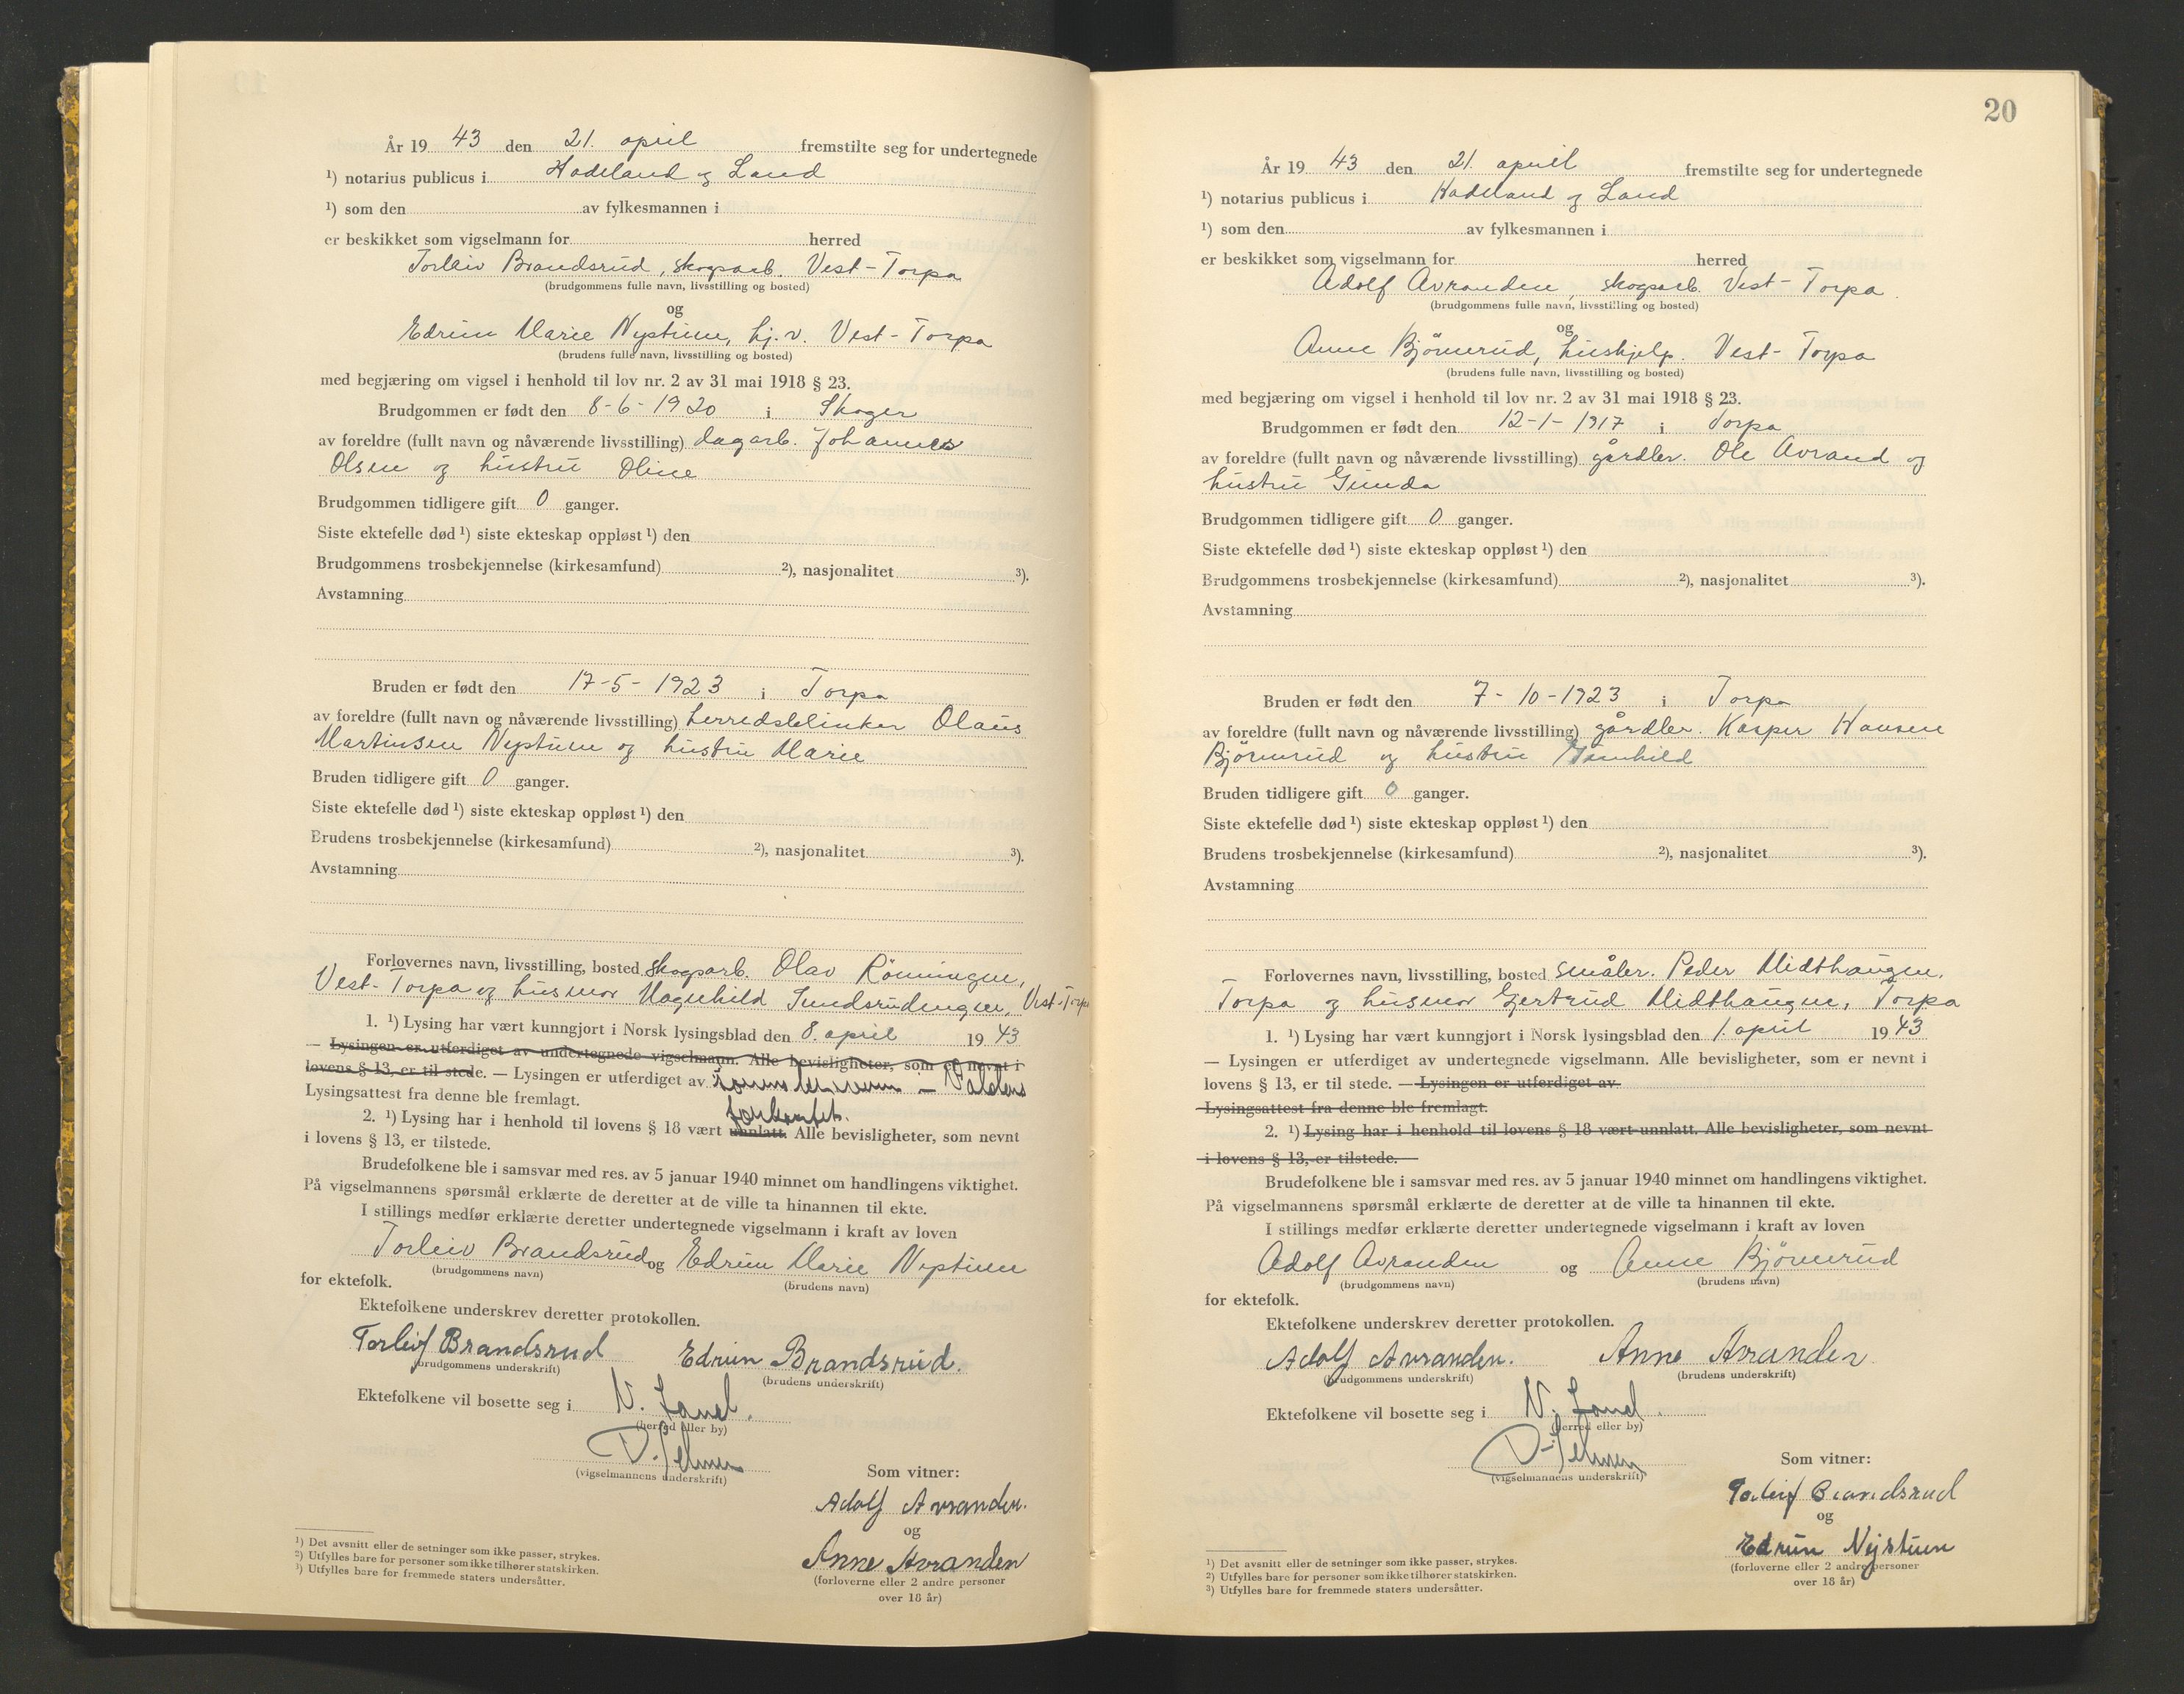 År 19 43 den 21. april fremstilte seg for undertegnede
¹) notarius publicus i Hadeland og Land
¹) som den av fylkesmannen i
er beskikket som vigselmann for herred
Torleiv Brandsrud, skogsarb. Vest-Torpa
(brudgommens fulle navn, livsstilling og bosted)
og
Edrun Marie Nystuen, hj.v. Vest-Torpa
(brudens fulle navn, livsstilling og bosted)
med begjæring om vigsel i henhold til lov nr. 2 av 31 mai 1918 § 23.
Brudgommen er født den 8-6-1920 i Skoger
av foreldre (fullt navn og nåværende livsstilling) dagarb. Johannes
Olsen og hustru Oline
Brudgommen tidligere gift 0 ganger.
Siste ektefelle død ¹) siste ekteskap oppløst ¹) den
Brudgommens trosbekjennelse (kirkesamfund) ²), nasjonalitet ³).
Avstamning
Bruden er født den 17-5-1923 i Torpa
av foreldre (fullt navn og nåværende livsstilling) Olaus
Martinsen og hustru Marie
Bruden tidligere gift 0 ganger.
Siste ektefelle død ¹) siste ekteskap oppløst ¹) den
Brudens trosbekjennelse (kirkesamfund) ²), nasjonalitet ³).
Avstamning
Forlovernes navn, livsstilling, bosted skogsarb. Olav Rönningen,
Vest-Torpa og husmor Magnhild Vest-Torpa
1. ¹) Lysing har vært kunngjort i Norsk lysingsblad den 8. april 19 43
— Lysingen er utferdiget av undertegnede vigselmann. Alle bevisligheter, som er nevnt i
lovens § 13, er til stede. — Lysingen er utferdiget av
Lysingsattest fra denne ble fremlagt.
2. ¹) Lysing har i henhold til lovens § 18 vært unnlatt. Alle bevisligheter, som nevnt
i lovens § 13, er tilstede.
Brudefolkene ble i samsvar med res. av 5 januar 1940 minnet om handlingens viktighet.
På vigselmannens spørsmål erklærte de deretter at de ville ta hinannen til ekte.
I stillings medfør erklærte deretter undertegnede vigselmann i kraft av loven
Torleiv Brandsrud og Edrun Marie Nystuen
(brudgommens navn) (brudens navn)
for ektefolk.
Ektefolkene underskrev deretter protokollen.
Torleif Brandsrud Edrun Brandsrud.
(brudgommens underskrift) (brudens underskrift)
Ektefolkene vil bosette seg i N. Land.
(herred eller by)
(vigselmannens underskrift)
Som vitner:
Adolf Avranden.
og
Anne Avranden
(forloverne eller 2 andre personer
over 18 år)
¹) Det avsnitt eller de setninger som ikke passer, strykes.
²) Utfylles bare for personer som ikke tilhører statskirken.
³) Utfylles bare for fremmede staters undersåtter.
20
År 19 43 den 21. april fremstilte seg for undertegnede
¹) notarius publicus i Hadeland og Land
¹) som den av fylkesmannen i
er beskikket som vigselmann for herred
Adolf Avranden, skogsarb. Vest-Torpa.
(brudgommens fulle navn, livsstilling og bosted)
og
Anne Björnerud, hushjelp. Vest-Torpa
(brudens fulle navn, livsstilling og bosted)
med begjæring om vigsel i henhold til lov nr. 2 av 31 mai 1918 § 23.
Brudgommen er født den 12-1-1917 i Torpa
av foreldre (fullt navn og nåværende livsstilling) gårdbr. Ole Avrand og
hustru Gunda
Brudgommen tidligere gift 0 ganger.
Siste ektefelle død ¹) siste ekteskap oppløst ¹) den
Brudgommens trosbekjennelse (kirkesamfund) ²), nasjonalitet ³).
Avstamning
Bruden er født den 7-10-1923 i Torpa
av foreldre (fullt navn og nåværende livsstilling) gårdbr. Kasper Hansen
Björnerud og hustru Gunhild
Bruden tidligere gift 0 ganger.
Siste ektefelle død ¹) siste ekteskap oppløst ¹) den
Brudens trosbekjennelse (kirkesamfund) ²), nasjonalitet ³).
Avstamning
Forlovernes navn, livsstilling, bosted småbr. Peder Midthaugen,
Torpa og husmor Gjertrud Midthaugen, Torpa
1. ¹) Lysing har vært kunngjort i Norsk lysingsblad den 1. april 19 43
— Lysingen er utferdiget av undertegnede vigselmann. Alle bevisligheter, som er nevnt i
lovens § 13, er til stede. — Lysingen er utferdiget av
Lysingsattest fra denne ble fremlagt.
2. ¹) Lysing har i henhold til lovens § 18 vært unnlatt. Alle bevisligheter, som nevnt
i lovens § 13, er tilstede.
Brudefolkene ble i samsvar med res. av 5 januar 1940 minnet om handlingens viktighet.
På vigselmannens spørsmål erklærte de deretter at de ville ta hinannen til ekte.
I stillings medfør erklærte deretter undertegnede vigselmann i kraft av loven
Adolf Avranden og Anne Björnerud
(brudgommens navn) (brudens navn)
for ektefolk.
Ektefolkene underskrev deretter protokollen.
Adolf Avranden. Anne Avranden
(brudgommens underskrift) (brudens underskrift)
Ektefolkene vil bosette seg i N. Land.
(herred eller by)
(vigselmannens underskrift)
Som vitner:
Torleif Brandsrud
og
Edrun Nystuen
(forloverne eller 2 andre personer
over 18 år)
¹) Det avsnitt eller de setninger som ikke passer, strykes.
²) Utfylles bare for personer som ikke tilhører statskirken.
³) Utfylles bare for fremmede staters undersåtter.